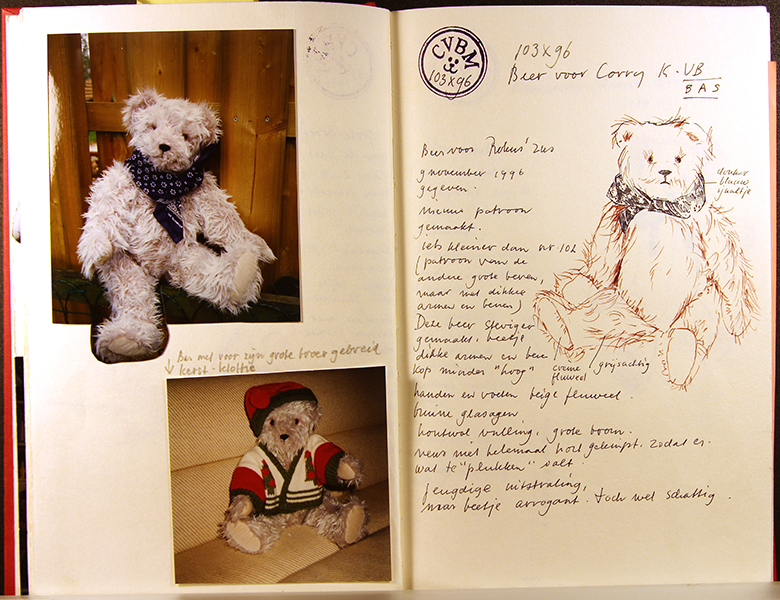 Bas met voor zijn grote broer gebreid
kerst-kloffie
CVBM
103X96
103X96
Beer voor Corry K. VB
BAS
Beer voor zus
9 november 1996
gegeven.
nieuw patroon
gemaakt.
iets kleiner dan nr 102
(patroon van de
andere grote beren,
maar met dikkere
armen en benen)
Deze beer steviger
gemaakt. beetje
dikke armen en bene
kop minder "hoog"
handen en voeten beige fluweel.
bruine glasogen
houtwol vulling, grote boom.
neus niet helemaal kort geknipt. zodat er
wat te "plukken" valt.
Jeugdige uitstraling,
maar beetje arrogant. toch wel schattig.
donker
blauw
sjaaltje
creme grijsachtig
fluweel